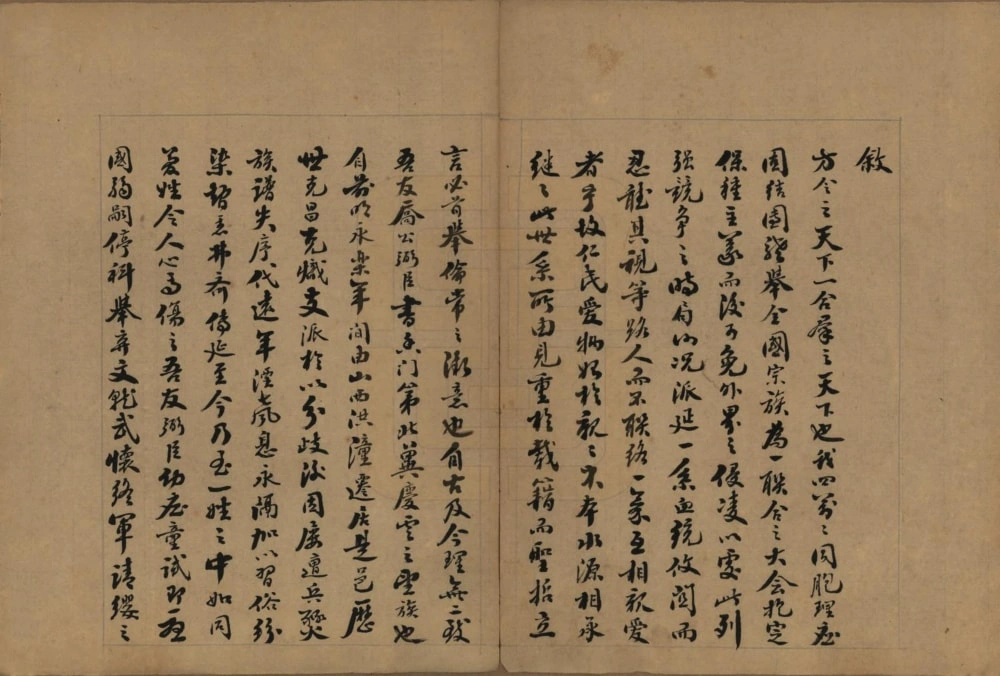 敘
方今之天下一合羣之天下也我四萬之同胞理應
固結團體舉全國宗族為一聯合之大会抱定
保種主義而後可免外界之侵凌以處此列
強競爭之時局的况派延一系血統攸関而
忍龍其視等路人而不聯絡一氣互相親愛
者乎故仁民愛物始於親之木本水源相承
继之此世系所由見重於載籍而聖哲立
言必首舉倫常之微意也自古及今理無二致
吾友喬公弼臣書香门第北冀慶雲之望族也
自前明永樂年间由山西洪潼遷居是邑歷
世克昌克熾支派於以分歧後因屡遭兵燹
族譜失序代遠年湮氣息永隔加以習俗紛
染語言井齐傳延至今乃至一姓之中如同
异姓令人心焉傷之吾友弼臣幼应童試即一
國弱嗣停科舉弃文就武懷終軍請纓之